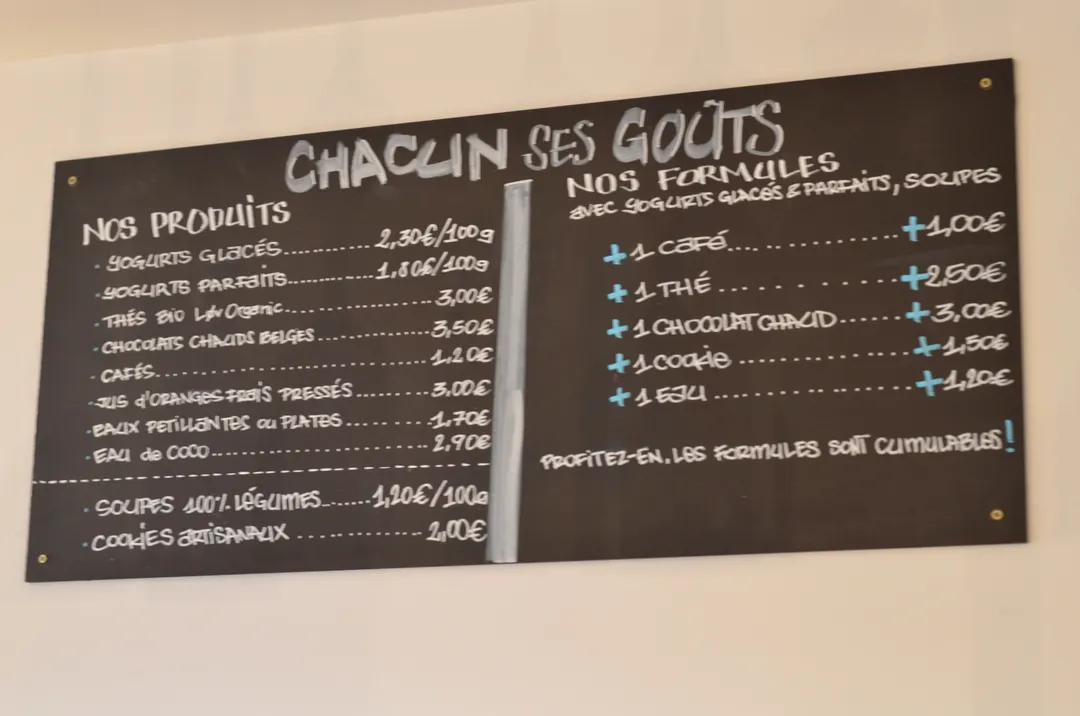 CHACUN SES GOÛTS
NOS PRODUITS
· YOGURTS GLACÉS............ 2,30€/100g
· YOGURTS PARFAITS............ 1,80€/100g
· THÉS BIO Løv Organic.................. 3,00€
· CHOCOLATS CHAUDS BELGES............... 3,50€
· CAFÉS................................ 1,20€
· JUS d'ORANGES FRAIS PRESSÉS.......... 3,00€
· EAUX PETILLANTES OU PLATES.......... 1,70€
· EAU de COCO.......................... 2,90€
· SOUPES 100% LÉGUMES........ 1,20€/100g
· COOKIES ARTISANAUX ................ 2,00€
NOS FORMULES
AVEC YOGURTS GLACÉS & PARFAITS, SOUPES
+ 1 CAFÉ.................. +1,00€
+ 1 THÉ .................. +2,50€
+ 1 CHOCOLAT CHAUD...... +3,00€
+ 1 COOKIE ................ +1,50€
+ 1 EAU .................. +1,20€
PROFITEZ-EN, LES FORMULES SONT CUMULABLES!